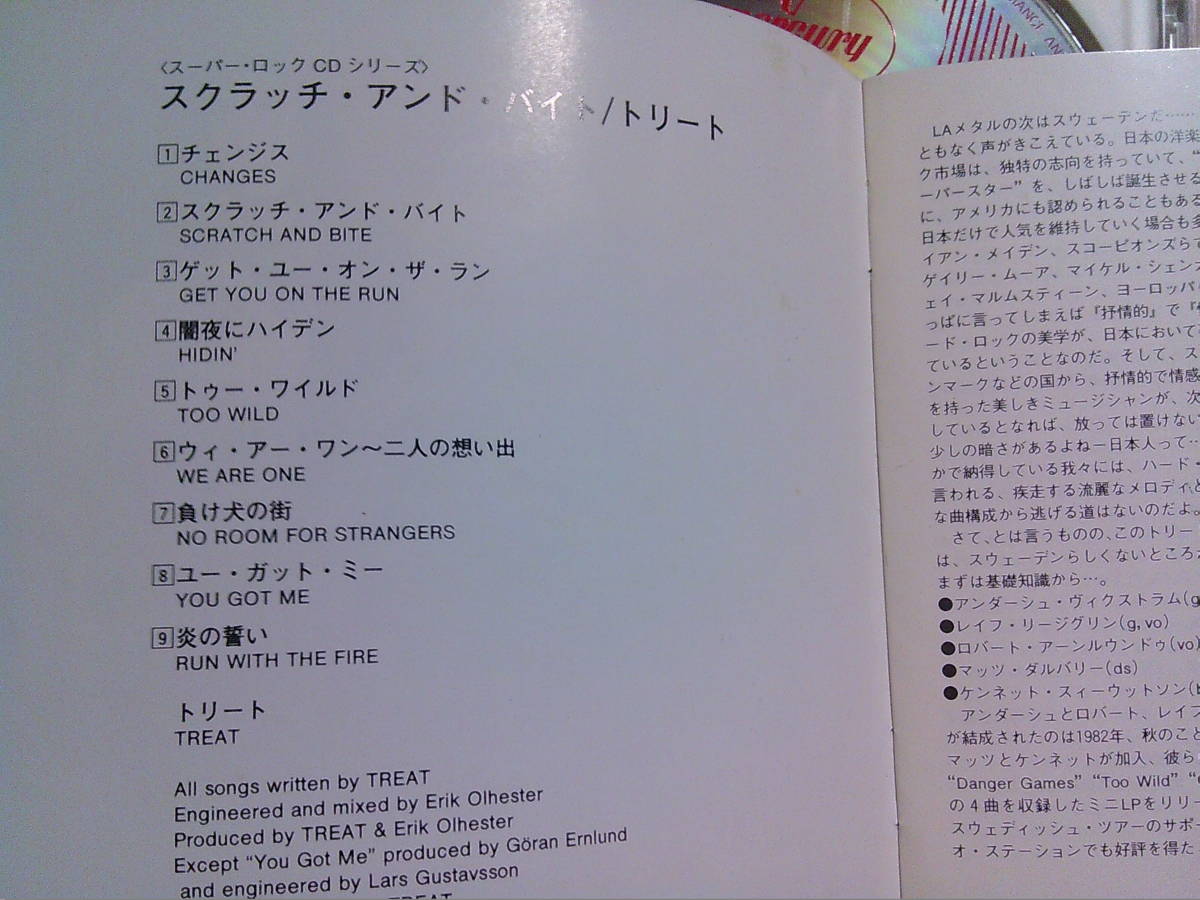 〈スーパー・ロック CD シリーズ〉
スクラッチ・アンド・バイト/トリート
1 チェンジス
CHANGES
2 スクラッチ・アンド・バイト
SCRATCH AND BITE
3 ゲット・ユー・オン・ザ・ラン
GET YOU ON THE RUN
4 闇夜にハイデン
HIDIN'
5 トゥー・ワイルド
TOO WILD
6 ウィ・アー・ワン〜二人の想い出
WE ARE ONE
7 負け犬の街
NO ROOM FOR STRANGERS
8 ユー・ガット・ミー
YOU GOT ME
9 炎の誓い
RUN WITH THE FIRE
トリート
TREAT
All songs written by TREAT
Engineered and mixed by Erik Olhester
Produced by TREAT & Erik Olhester
Except “You Got Me” produced by Göran Ernlund
and engineered by Lars Gustavsson
TREAT
LAメタルの次はスウェーデンだ……
ともなく声がきこえている。日本の洋楽
ク市場は、独特の志向を持っていて、“
ーパースター”を、しばしば誕生させる
に、アメリカにも認められることもある
日本だけで人気を維持していく場合も多
イアン・メイデン、スコーピオンズらて
ゲイリー・ムーア、マイケル・シェンカ
ェイ・マルムスティーン、ヨーロッパ
っぱに言ってしまえば『抒情的』で『
ード・ロックの美学が、日本において
ているということなのだ。そして、ス
ンマークなどの国から、抒情的で情感
を持った美しきミュージシャンが、次
しているとなれば、放っては置けない
少しの暗さがあるよねー日本人って…
かで納得している我々には、ハード・
言われる、疾走する流麗なメロディと
な曲構成から逃げる道はないのだよ。
さて、とは言うものの、このトリー
は、スウェーデンらしくないところが
まずは基礎知識から…。
●アンダーシュ・ヴィクストラム(g
●レイフ・リージグリン(g,vo)
●ロバート・アーンルウンドゥ(vo)
●マッツ・ダルバリー(ds)
●ケンネット・スィーウットソン(b
アンダーシュとロバート、レイフ
が結成されたのは1982年、秋のこと
マッツとケンネットが加入、彼ら
“Danger Games” “Too Wild”
の4曲を収録したミニLPをリリー
スウェディッシュ・ツアーのサポー
オ・ステーションでも好評を得た